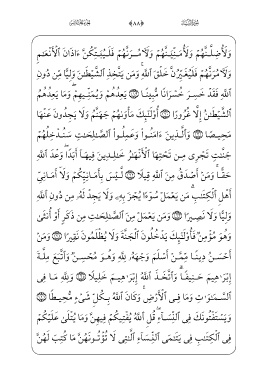 وَلَأُضِلَّنَّهُمْ وَلَأُمَنِّيَنَّهُمْ وَلَءَامُرَنَّهُمْ فَلَيُبَتِّكُنَّ ءَاذَانَ ٱلْأَنْعَٰمِ
وَلَءَامُرَنَّهُمْ فَلَيُغَيِّرُنَّ خَلْقَ ٱللَّهِ ۚ وَمَن يَتَّخِذِ ٱلشَّيْطَٰنَ وَلِيًّا مِّن دُونِ
ٱللَّهِ فَقَدْ خَسِرَ خُسْرَانًا مُّبِينًا ۝١١٩ يَعِدُهُمْ وَيُمَنِّيهِمْ ۖ وَمَا يَعِدُهُمُ
ٱلشَّيْطَٰنُ إِلَّا غُرُورًا ۝١٢٠ أُو۟لَٰٓئِكَ مَأْوَىٰهُمْ جَهَنَّمُ وَلَا يَجِدُونَ عَنْهَا
مَحِيصًا ۝١٢١ وَٱلَّذِينَ ءَامَنُوا۟ وَعَمِلُوا۟ ٱلصَّٰلِحَٰتِ سَنُدْخِلُهُمْ
جَنَّٰتٍ تَجْرِى مِن تَحْتِهَا ٱلْأَنْهَٰرُ خَٰلِدِينَ فِيهَآ أَبَدًا ۖ وَعْدَ ٱللَّهِ
حَقًّا ۚ وَمَنْ أَصْدَقُ مِنَ ٱللَّهِ قِيلًا ۝١٢٢ لَّيْسَ بِأَمَانِيِّكُمْ وَلَآ أَمَانِىِّ
أَهْلِ ٱلْكِتَٰبِ ۗ مَن يَعْمَلْ سُوٓءًا يُجْزَ بِهِۦ وَلَا يَجِدْ لَهُۥ مِن دُونِ ٱللَّهِ
وَلِيًّا وَلَا نَصِيرًا ۝١٢٣ وَمَن يَعْمَلْ مِنَ ٱلصَّٰلِحَٰتِ مِن ذَكَرٍ أَوْ أُنثَىٰ
وَهُوَ مُؤْمِنٌ فَأُو۟لَٰٓئِكَ يَدْخُلُونَ ٱلْجَنَّةَ وَلَا يُظْلَمُونَ نَقِيرًا ۝١٢٤ وَمَنْ
أَحْسَنُ دِينًا مِّمَّنْ أَسْلَمَ وَجْهَهُۥ لِلَّهِ وَهُوَ مُحْسِنٌ وَٱتَّبَعَ مِلَّةَ
إِبْرَٰهِيمَ حَنِيفًا ۗ وَٱتَّخَذَ ٱللَّهُ إِبْرَٰهِيمَ خَلِيلًا ۝١٢٥ وَلِلَّهِ مَا فِى
ٱلسَّمَٰوَٰتِ وَمَا فِى ٱلْأَرْضِ ۚ وَكَانَ ٱللَّهُ بِكُلِّ شَىْءٍ مُّحِيطًا ۝١٢٦
وَيَسْتَفْتُونَكَ فِى ٱلنِّسَآءِ ۖ قُلِ ٱللَّهُ يُفْتِيكُمْ فِيهِنَّ وَمَا يُتْلَىٰ عَلَيْكُمْ
فِى ٱلْكِتَٰبِ فِى يَتَٰمَى ٱلنِّسَآءِ ٱلَّٰتِى لَا تُؤْتُونَهُنَّ مَا كُتِبَ لَهُنَّ